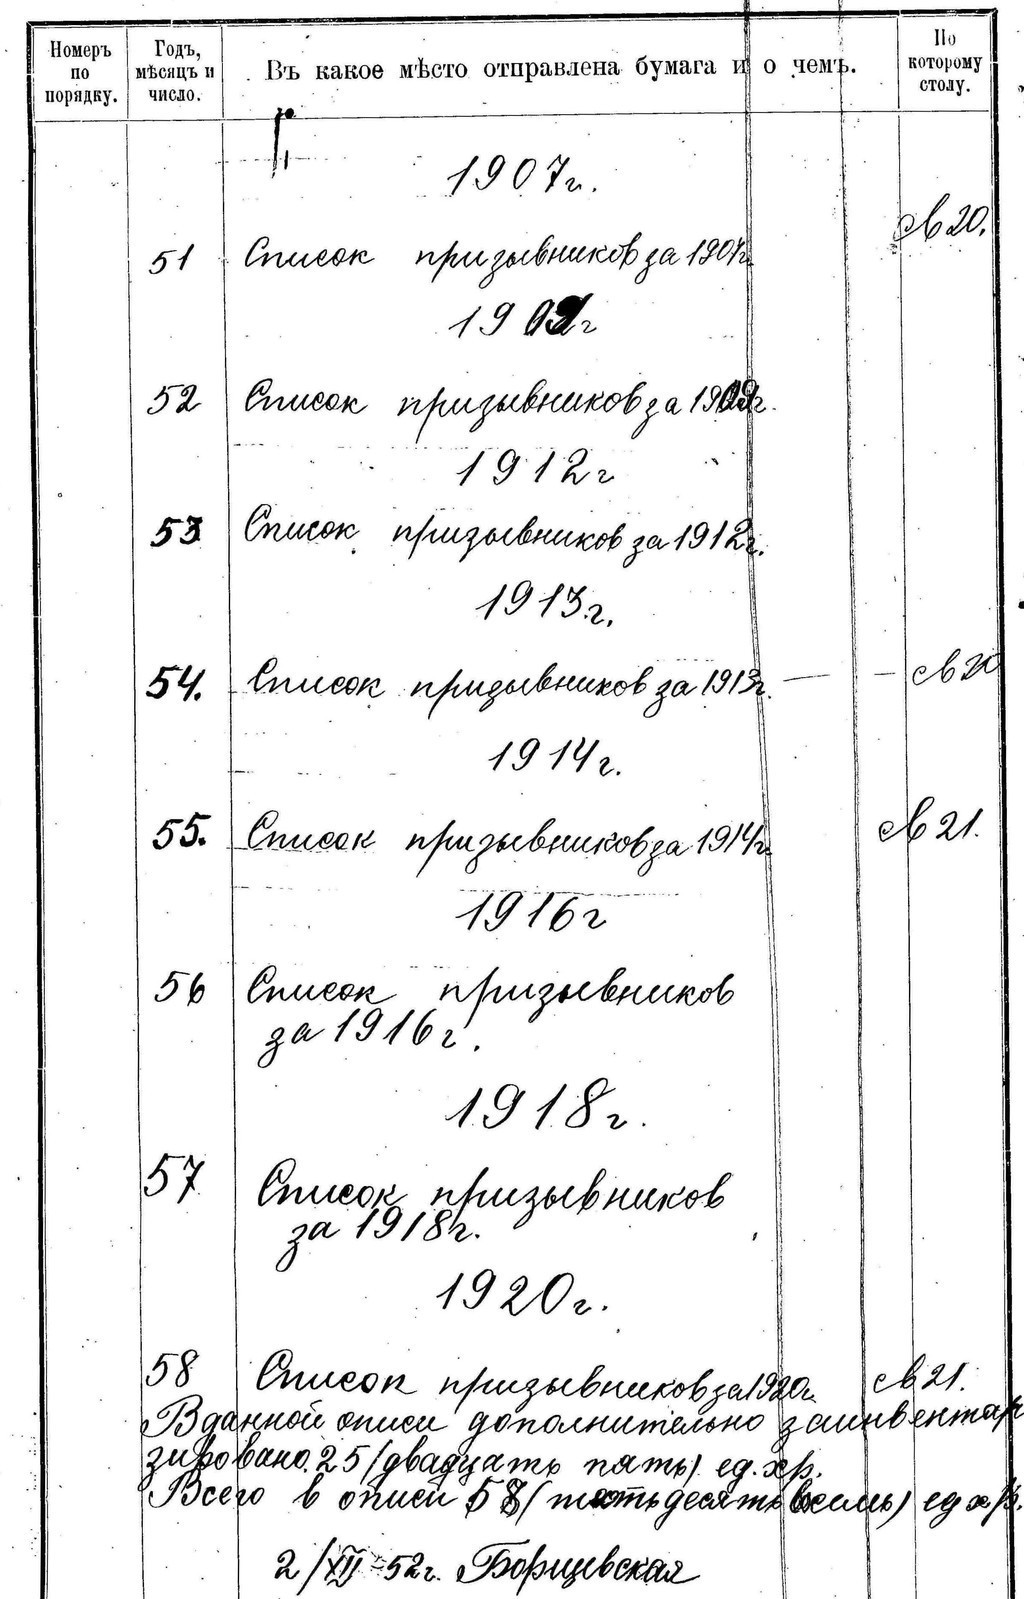 Номеръ по порядку.
Годъ, мѣсяцъ и число.
Въ какое мѣсто отправлена бумага и о чемъ.
По которому столу.
1907г.
св 20.
51 Список призывников за 1907г.
1909г
52 Список призывников за 1909г.
1912г
53 Список призывников за 1912г.
1913г.
54. Список призывников за 1913г. св 20
1914г.
55. Список призывников за 1914г. св 21.
1916г
56 Список призывников
за 1916г.
1918г.
57 Список призывников
за 1918г.
1920г.
58 Список призывников за 1920г. св 21.
В данной описи дополнительно заинвентар
зировано 25 (двадцать пять) ед. хр.
Всего в описи 58 (пятьдесять восемь) ед хр.
2/XII-52г. Борщевская